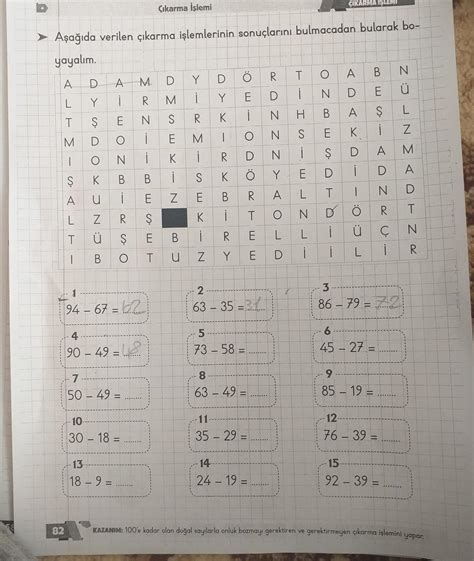 Çıkarma İşlemi
ÇIKARMA İŞLEMİ
➤ Aşağıda verilen çıkarma işlemlerinin sonuçlarını bulmacadan bularak bo-
yayalım.
A D A M D Y D Ö R T O A B N
L Y İ R M İ Y E D İ N D E Ü
T Ş E N S R K İ N H B A Ş L
M D O İ E M I O N S E K İ Z
I O N İ K İ R D N İ Ş D A M
Ş K B B İ S K Ö Y E D İ D A
A U İ E Z E B R A L T I N D
L Z R Ş K İ T O N D Ö R T
T Ü Ş E B İ R E L L İ Ü Ç N
I B O T U Z Y E D İ İ L İ R
1 2 3
94 – 67 = 62 63 – 35 = 31 86 – 79 = 72
4 5 6
90 – 49 = 73 – 58 = ........ 45 – 27 = ........
7 8 9
50 – 49 = ........ 63 – 49 = ........ 85 – 19 = ........
10 11 12
30 – 18 = ........ 35 – 29 = ........ 76 – 39 = ........
13 14 15
18 – 9 = ........ 24 – 19 = ........ 92 – 39 = ........
82 KAZANIM: 100'e kadar olan doğal sayılarla onluk bozmayı gerektiren ve gerektirmeyen çıkarma işlemini yapar.